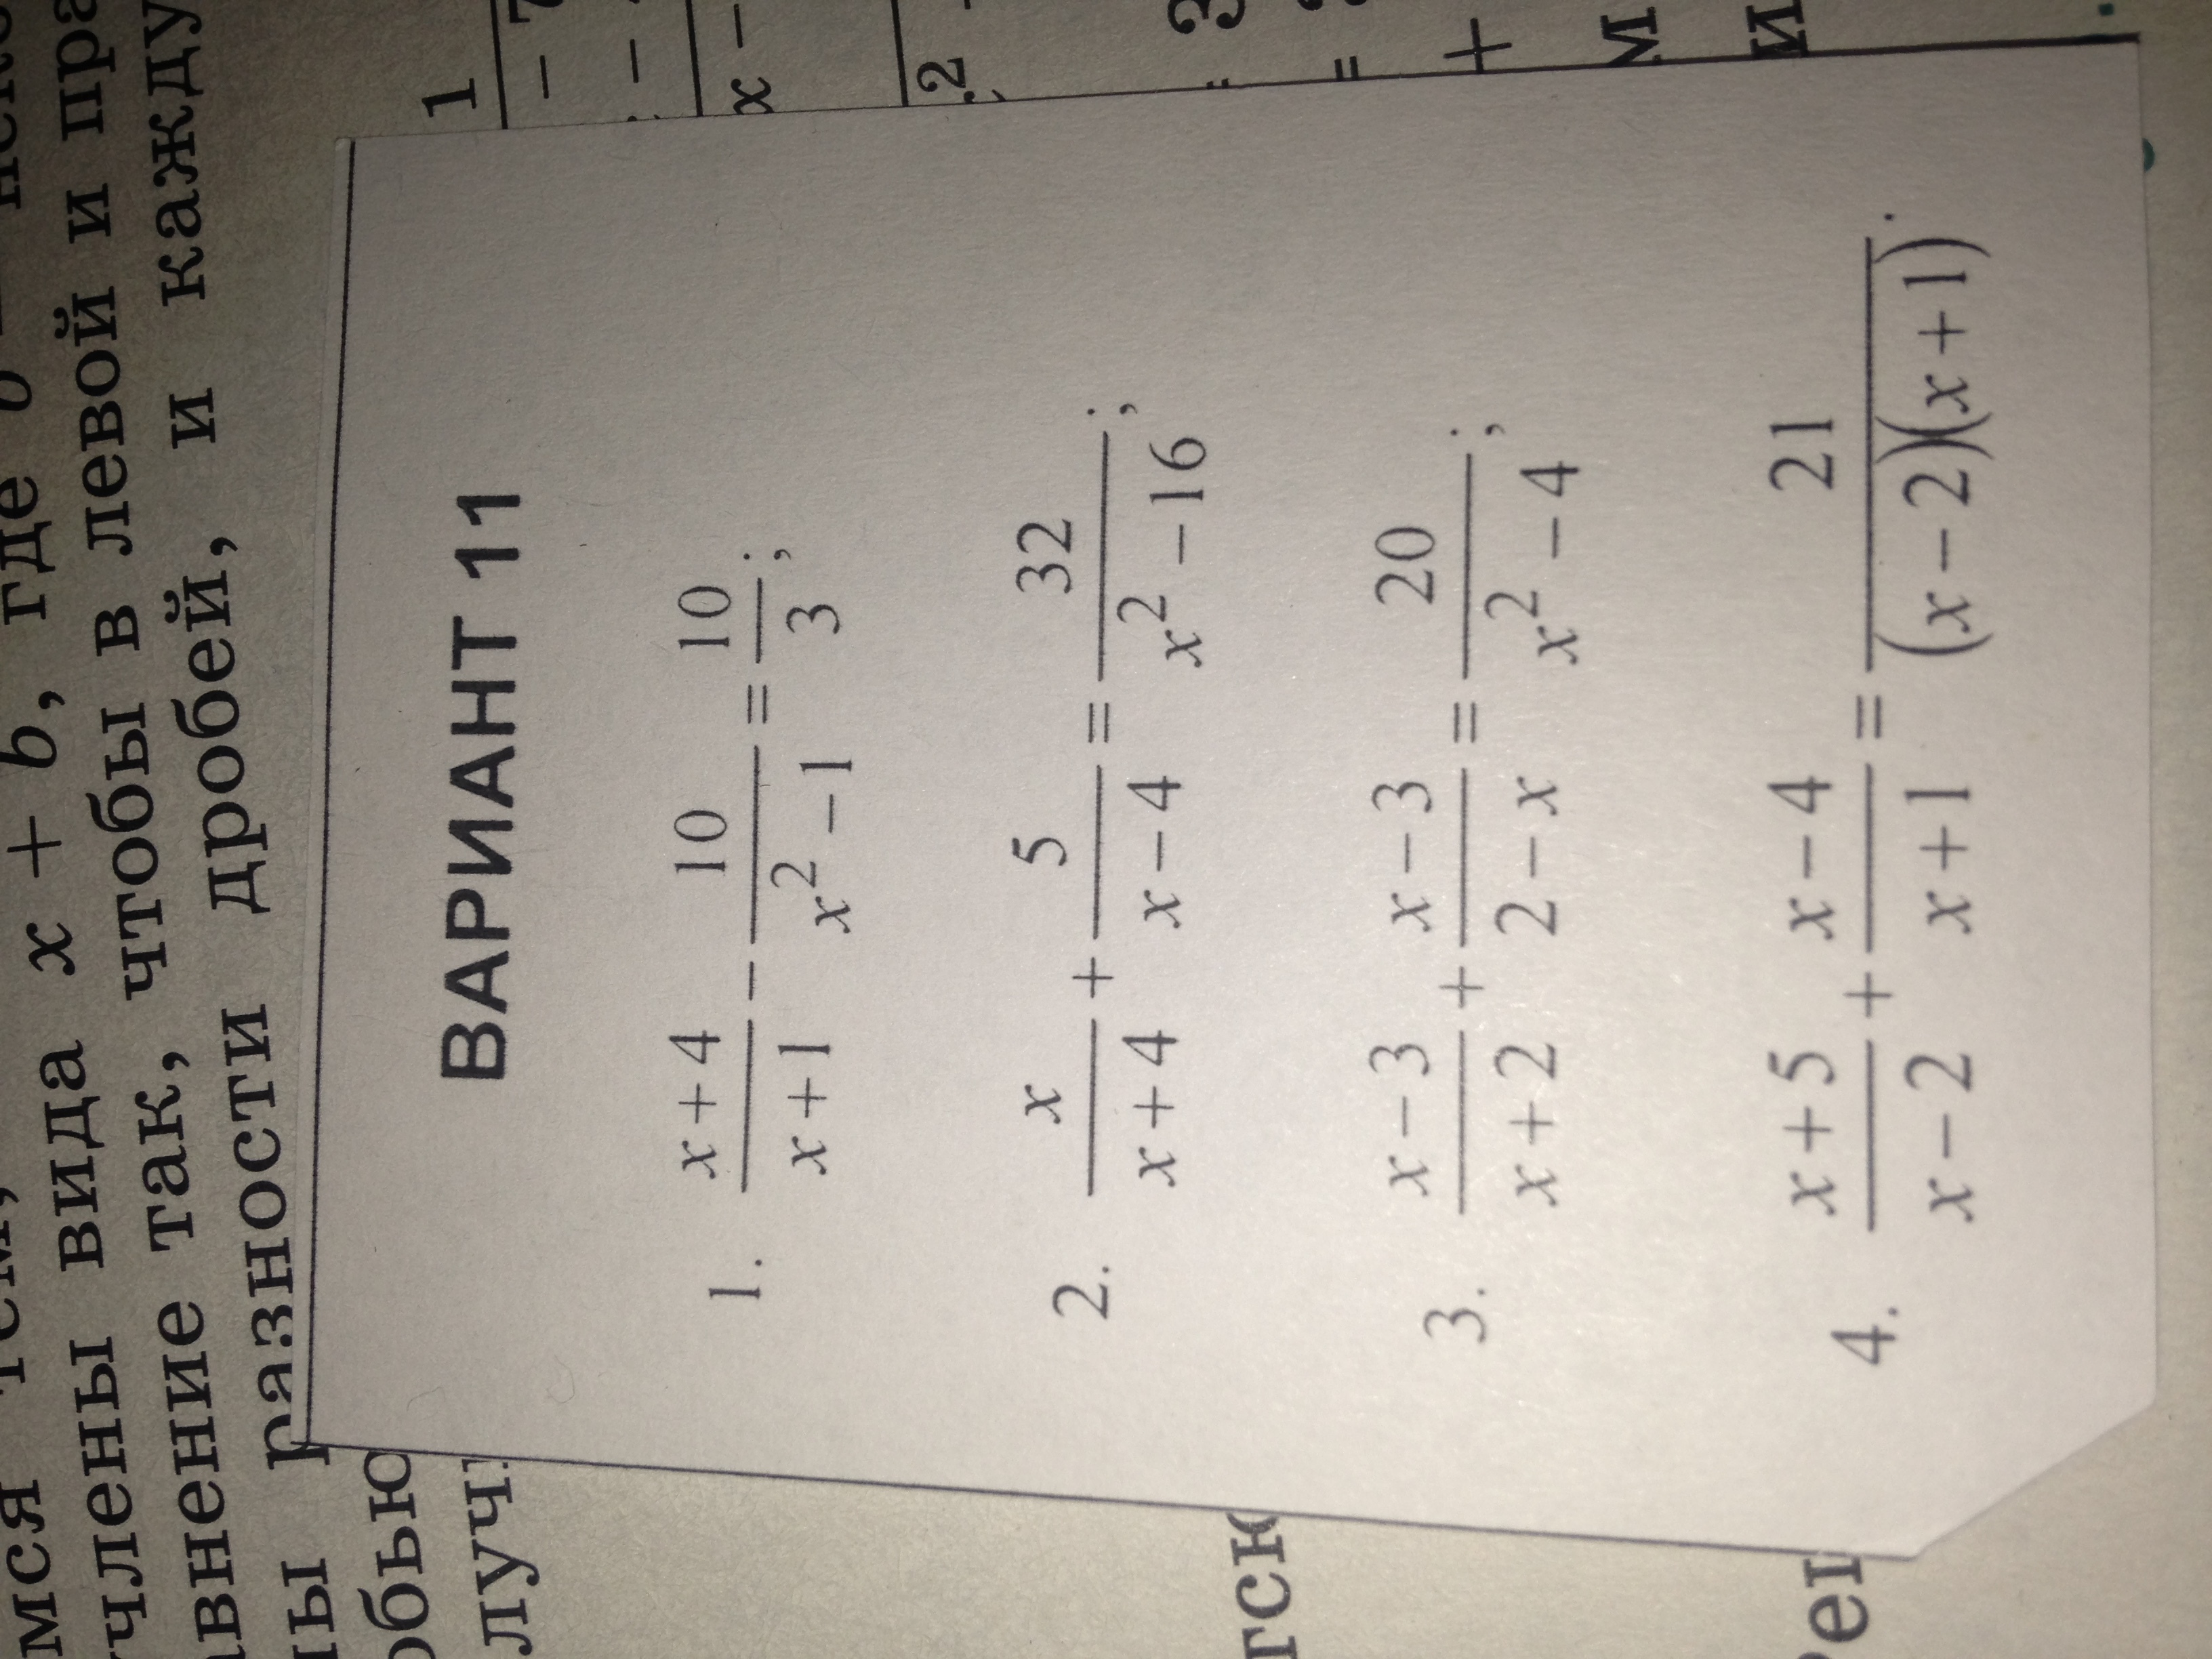 члены вида x + b, где b
авнение так, чтобы в левой и пра
ны разности дробей, и кажду
ВАРИАНТ 11
1. \frac{x+4}{x+1} - \frac{10}{x^2-1} = \frac{10}{3};
2. \frac{x}{x+4} + \frac{5}{x-4} = \frac{32}{x^2-16};
3. \frac{x-3}{x+2} + \frac{x-3}{2-x} = \frac{20}{x^2-4};
4. \frac{x+5}{x-2} + \frac{x-4}{x+1} = \frac{21}{(x-2)(x+1)}.